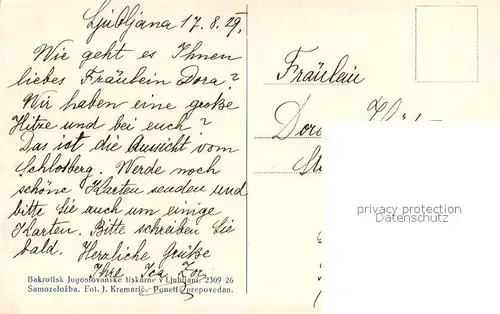 Ljubljana 17. 8. 29.
Wie geht es Ihnen
liebes Fräulein Dora?
Wir haben eine große
Hitze und bei euch?
Das ist die Aussicht vom
Schloßberg. Werde noch
schöne Karten senden und
bitte Sie auch um einige
Karten. Bitte schreiben Sie
bald. Herzliche Grüße
Ihre
Bakrotisk Jugoslovanske tiskarne v Ljubljani. 2309 26
Samozaložba. Fot. J. Kramarič. Ponatis prepovedan.
Fräulein
privacy protection